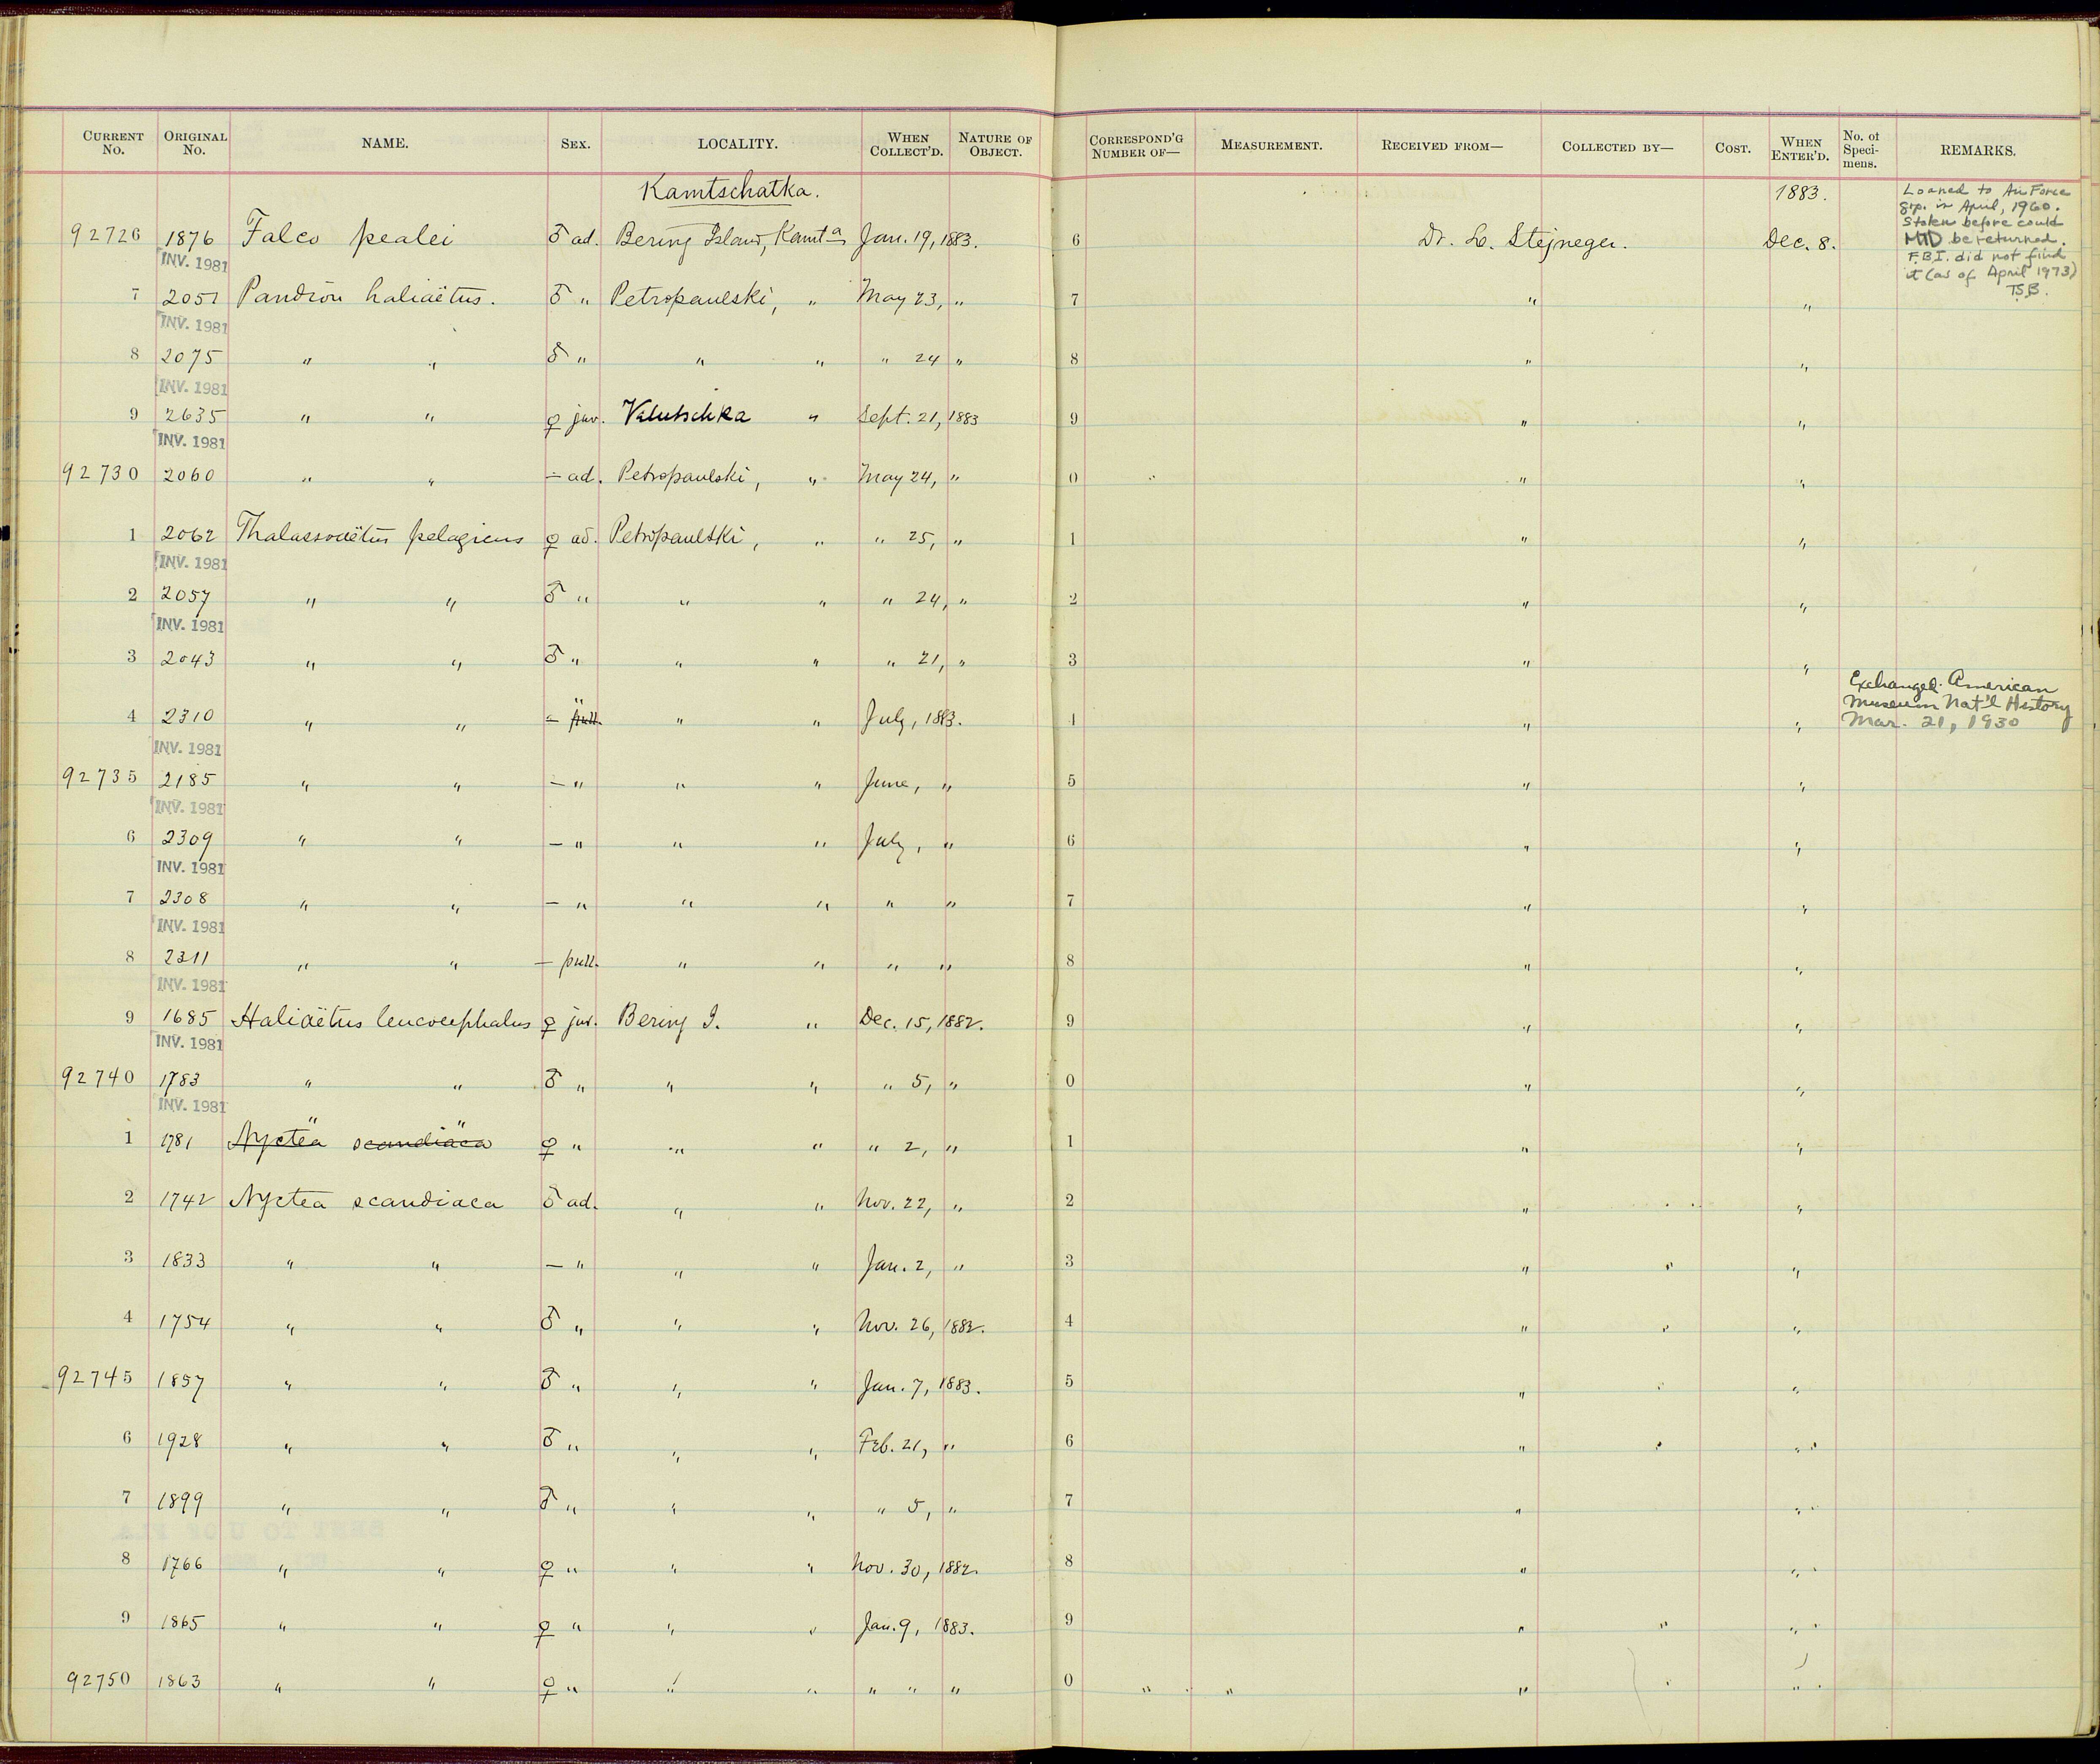 CURRENT No. ORIGINAL No. NAME. SEX. LOCALITY. WHEN COLLECT'D. NATURE OF OBJECT. CORRESPOND'G NUMBER OF— MEASUREMENT. RECEIVED FROM— COLLECTED BY— COST. WHEN ENTER'D. No. of Specimens. REMARKS.
Kamtschatka. 1883.
Loaned to Air Force
grp. in April, 1960.
Stolen before could
be returned.
F.B.I. did not find
it (as of April 1973)
T.S.B.
92726 1876 Falco pealei ♂ ad. Bering Island, Kamta Jan. 19, 1883. 6 Dr. L. Stejneger. Dec. 8.
INV. 1981
7 2051 Pandion haliaëtus. ♂ " Petropaulski, " May 23, " 7 " "
INV. 1981
8 2075 " " ♂ " " " " 24 " 8 " "
INV. 1981
9 2635 " " ♀ juv. Kalutschka " Sept. 21, 1883 9 " "
INV. 1981
92730 2060 " " — ad. Petropaulski, " May 24, " 0 " "
1 2062 Thalassoaëtus pelagicus ♀ ad. Petropaulski, " " 25, " 1 " "
INV. 1981
2 2057 " " ♂ " " " " 24, " 2 " "
INV. 1981
3 2043 " " ♂ " " " " 21, " 3 " "
Exchanged. American
Museum Nat'l History
Mar. 21, 1930
4 2310 " " — " pull. " " July, 1883. 4 " "
INV. 1981
92735 2185 " " — " " " June, " 5 " "
INV. 1981
6 2309 " " — " " " July, " 6 " "
INV. 1981
7 2308 " " — " " " " " 7 " "
INV. 1981
8 2311 " " — pull. " " " " 8 " "
INV. 1981
9 1685 Haliaëtus leucocephalus ♀ juv. Bering I. " Dec. 15, 1882. 9 " "
INV. 1981
92740 1783 " " ♂ " " " " 5, " 0 " "
INV. 1981
1 1781 " " Nyctea scandiaca ♀ " " " " 2, " 1 " "
2 1742 Nyctea scandiaca ♂ ad. " " Nov. 22, " 2 " "
3 1833 " " — " " " Jan. 2, " 3 " " "
4 1754 " " ♂ " " " Nov. 26, 1882. 4 " " "
92745 1857 " " ♂ " " " Jan. 7, 1883. 5 " " "
6 1928 " " ♂ " " " Feb. 21, " 6 " " "
7 1899 " " ♂ " " " " 5, " 7 " "
8 1766 " " ♀ " " " Nov. 30, 1882. 8 " "
9 1865 " " ♀ " " " Jan. 9, 1883. 9 " " "
92750 1863 " " ♀ " " " " " " 0 " " " " "